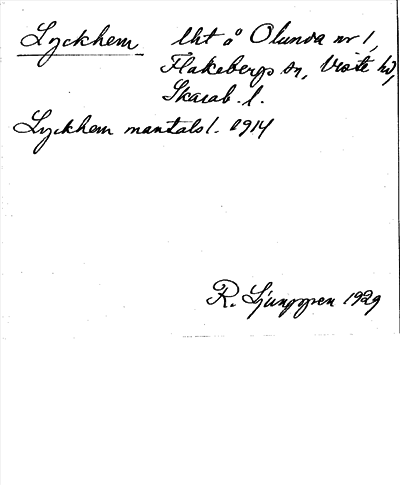 Lyckhem lht å Olunda nr 1,
Flakebergs sn, Viste hd,
Skarab. l.
Lyckhem mantalsl. 1914
R. Ljunggren 1929